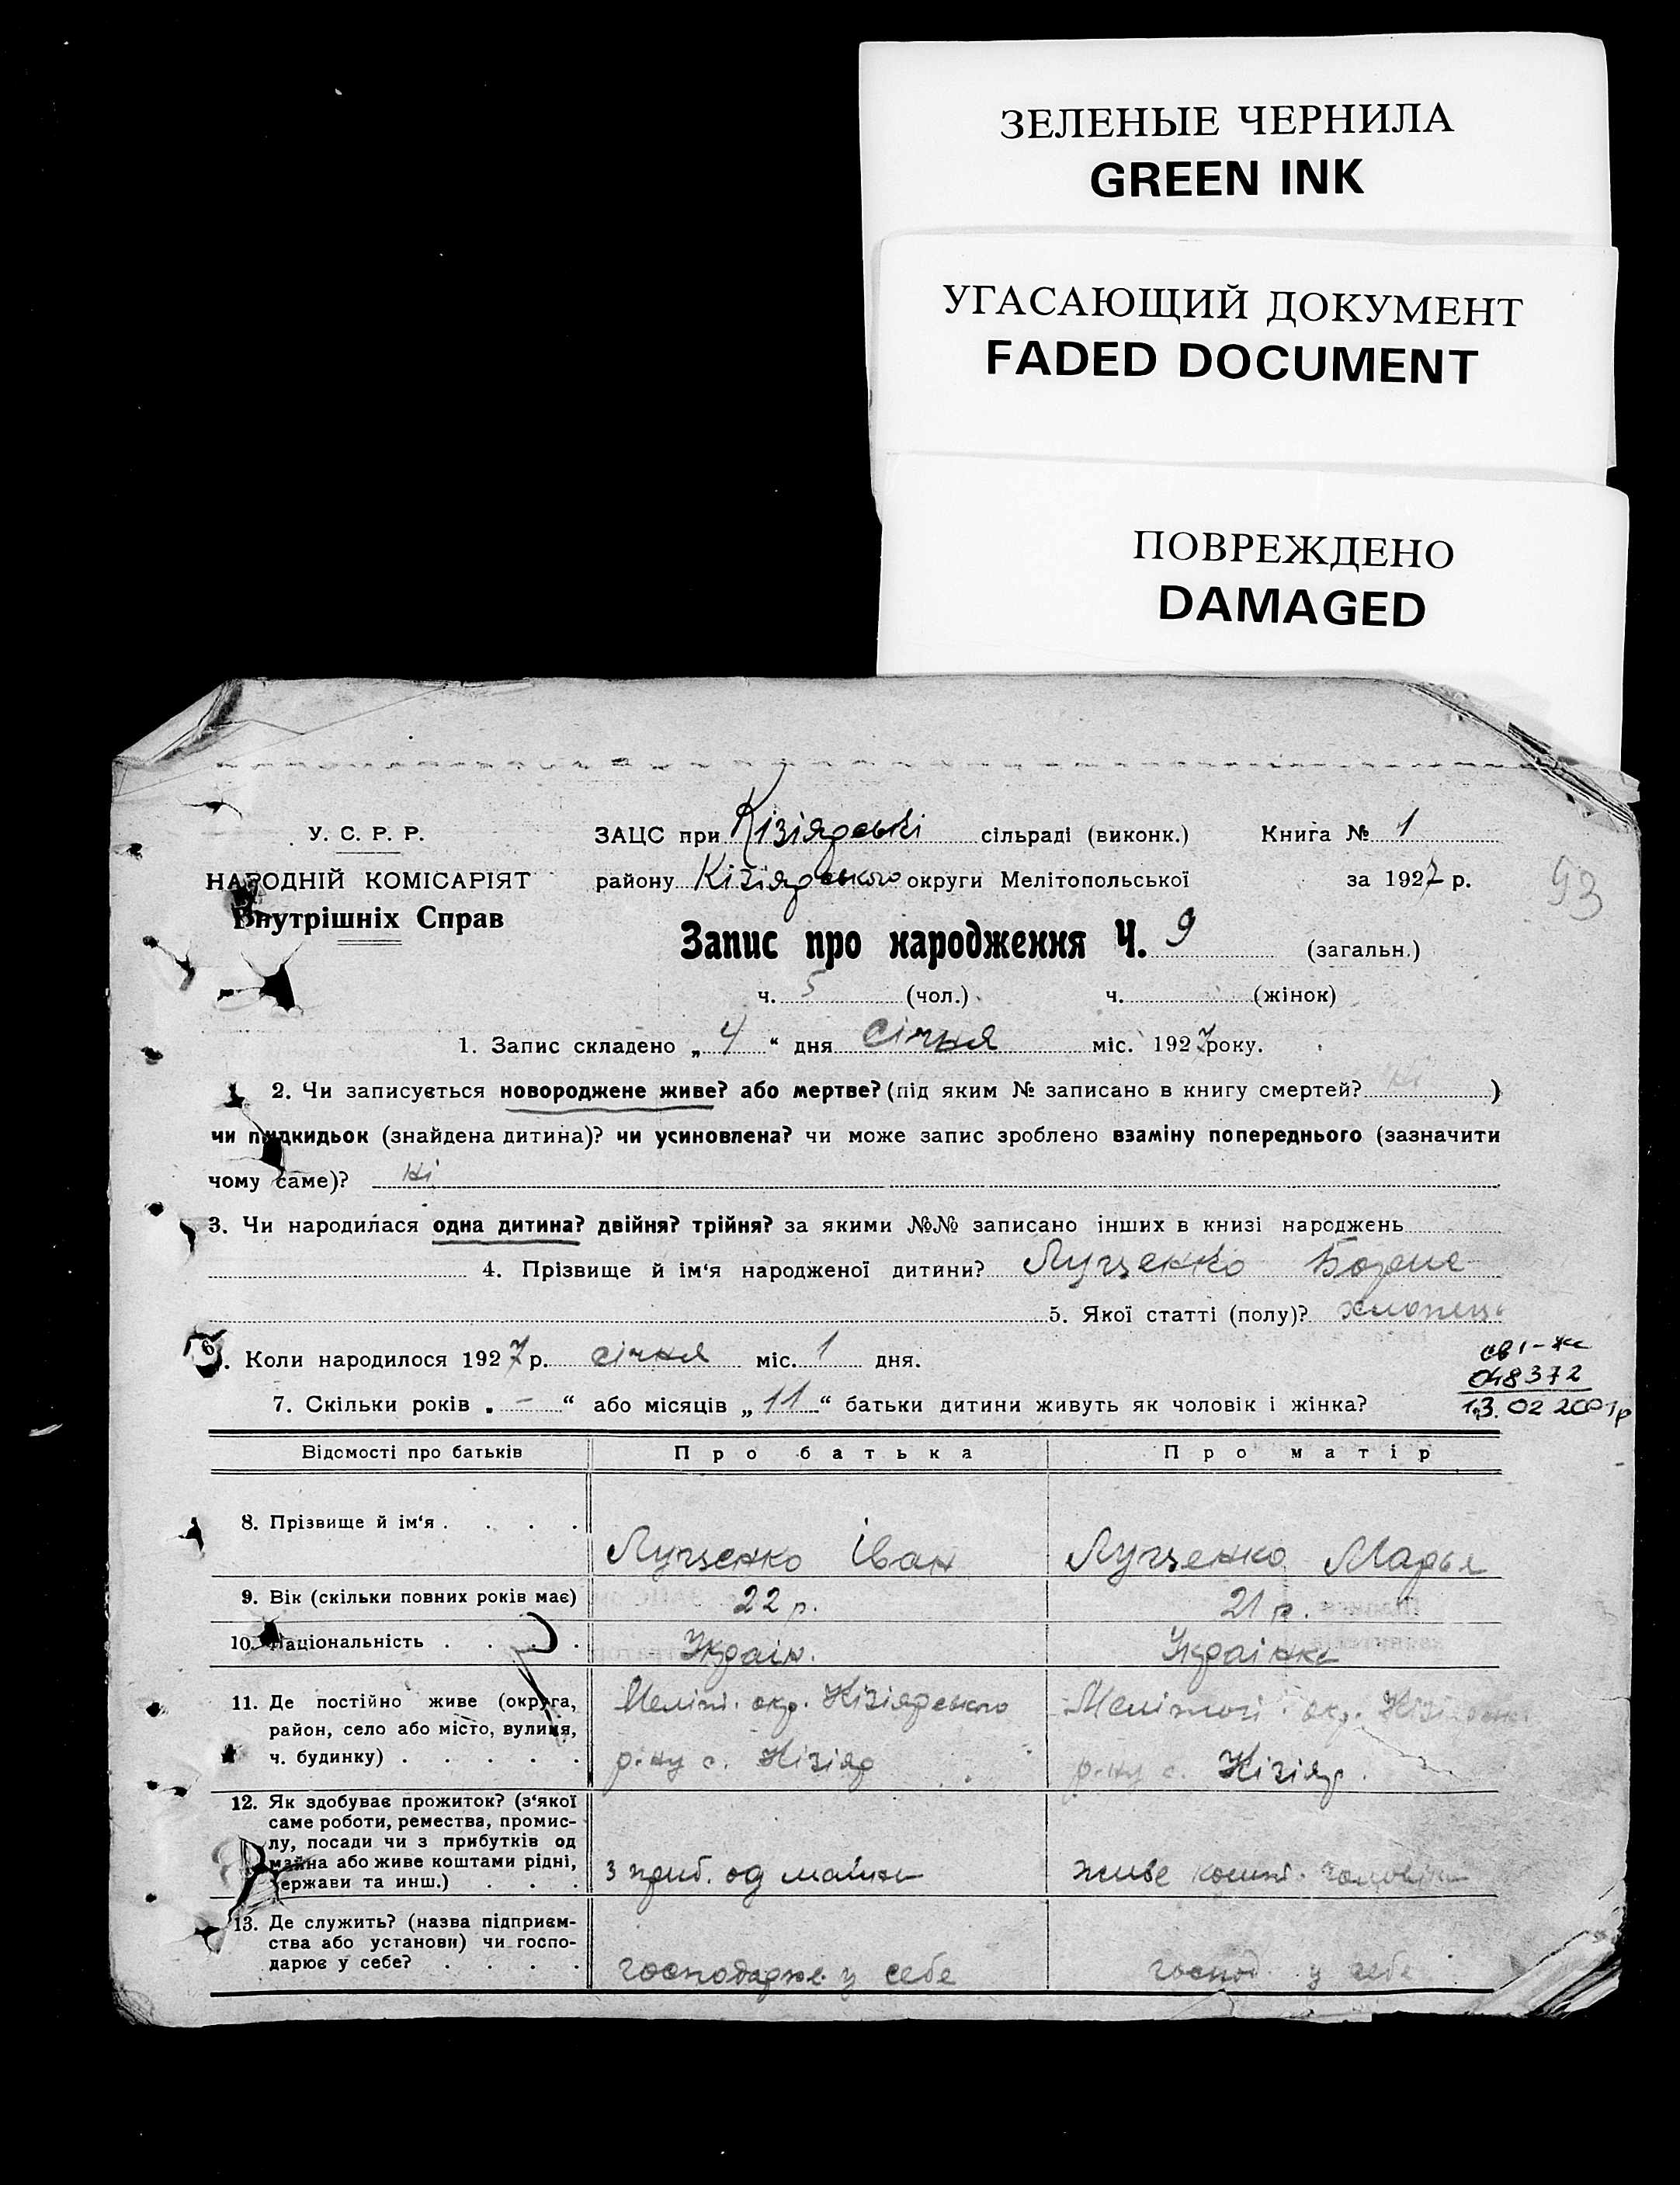 ЗЕЛЕНЫЕ ЧЕРНИЛА
GREEN INK
УГАСАЮЩИЙ ДОКУМЕНТ
FADED DOCUMENT
ПОВРЕЖДЕНО
DAMAGED
У. С. Р. Р.
НАРОДНІЙ КОМІСАРІЯТ
Внутрішніх Справ
ЗАЦС при Кізіярські сільраді (виконк.) Книга № 1
району Кізіярського округи Мелітопольської за 1927 р.
93
Запис про народження Ч. 9 (загальн.)
ч. 5 (чол.) ч. (жінок)
1. Запис складено „ 4 “ дня Січня міс. 1927 року.
2. Чи записується новороджене живе? або мертве? (під яким № записано в книгу смертей? ні )
чи підкидьок (знайдена дитина)? чи усиновлена? чи може запис зроблено взаміну попереднього (зазначити
чому саме)? ні
3. Чи народилася одна дитина? двійня? трійня? за якими №№ записано інших в книзі народжень
4. Прізвище й ім‘я народженої дитини? Луценко
5. Якої статті (полу)? хлопець
6. Коли народилося 1927 р. січня міс. 1 дня.
7. Скільки років „ - “ або місяців „ 11 “ батьки дитини живуть як чоловік і жінка?
048372
13.02 2001р
Відомості про батьків Про батька Про матір
8. Прізвище й ім‘я . . . . Луценко Іван Луценко Марья
9. Вік (скільки повних років має) 22 р. 21 р.
10. Національність . . . . Україн. Українка
11. Де постійно живе (округа, Меліт. окр. Кізіярського Меліпол. окр.
район, село або місто, вулиця,
ч. будинку) . . . . . р-ну с. Кізіяр р-ну с. Кізіяр.
12. Як здобуває прожиток? (з‘якої
саме роботи, ремества, промис-
лу, посади чи з прибутків од
майна або живе коштами рідні,
держави та инш.) . . . з приб. од майна живе кошт. чоловіка
13. Де служить? (назва підприєм-
ства або установи) чи госпо-
дарює у себе? . . . . господарює у себе господ. у себе